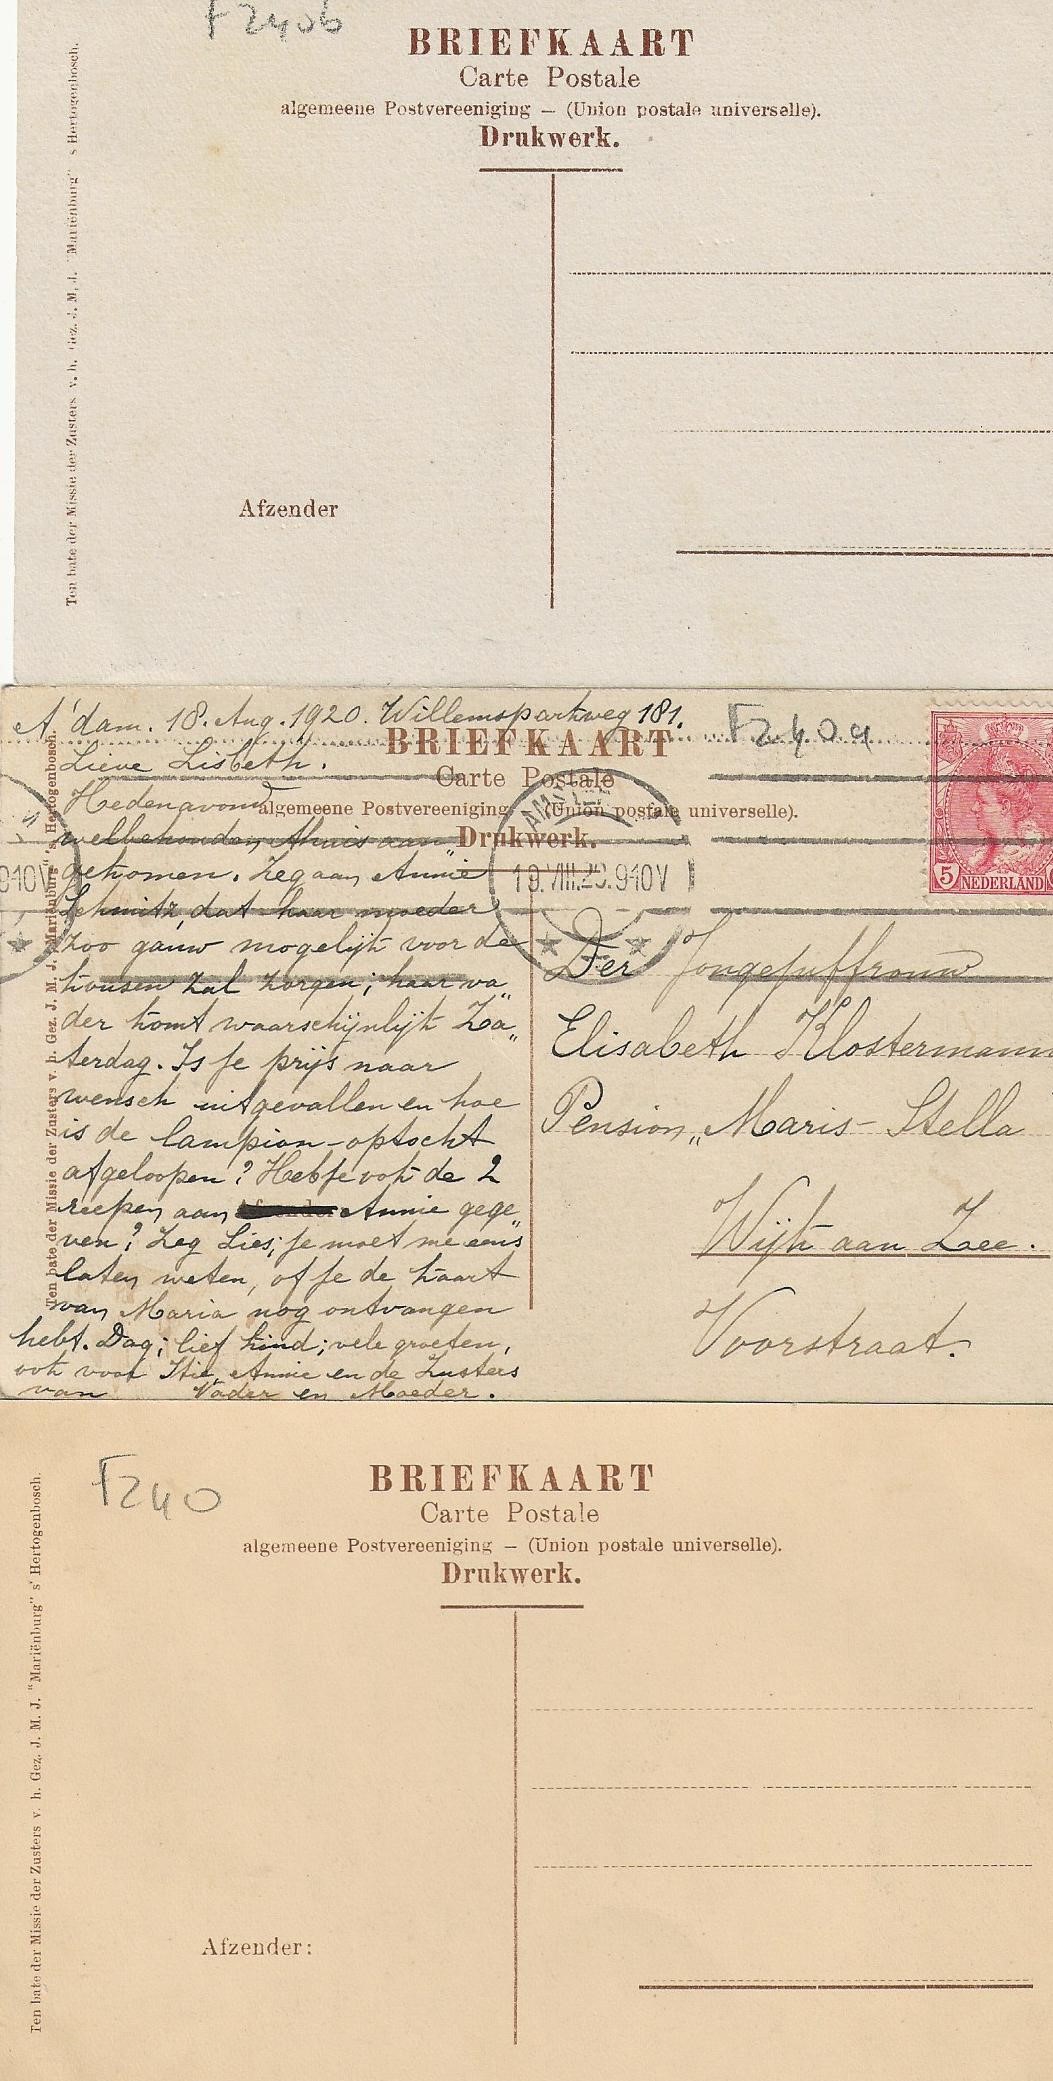 F240b
BRIEFKAART
Carte Postale
algemeene Postvereeniging — (Union postale universelle).
Drukwerk.
Ten bate der Missie der Zusters v. h. Gez. J. M. J. "Mariënburg" s Hertogenbosch.
Afzender
A'dam. 18. Aug. 1920. Willemsparkweg 181.
F240a
BRIEFKAART
Lieve Lisbeth.
Carte Postale
Hedenavond
algemeene Postvereeniging (Union postale universelle).
welbehouden thuis aan"
Drukwerk.
gekomen. Zeg aan Annie
19.VIII.20.9-10V
910V
5 NEDERLAND
Schmitz, dat haar moeder
zoo gauw mogelijk voor de
kousen zal zorgen; haar va"
der komt waarschijnlijk Za"
terdag. Is je prijs naar
wensch uitgevallen en hoe
is de lampion-optocht
afgeloopen? Heb je ook de 2
reepen aan Annie gege"
ven? Zeg Lies; je moet me eens
laten weten, of je de kaart
van Maria nog ontvangen
hebt. Dag; lief kind; vele groeten,
ook voor Annie en de Zusters
van Vader en Moeder.
Der Jongejuffrouw
Elisabeth Klostermann
Pension „Maris-Stella
Wijk aan Zee.
Voorstraat.
Ten bate der Missie der Zusters v. h. Gez. J. M. J. "Mariënburg" s' Hertogenbosch.
F240
BRIEFKAART
Carte Postale
algemeene Postvereeniging — (Union postale universelle).
Drukwerk.
Ten bate der Missie der Zusters v. h. Gez. J. M. J. "Mariënburg" s' Hertogenbosch.
Afzender: